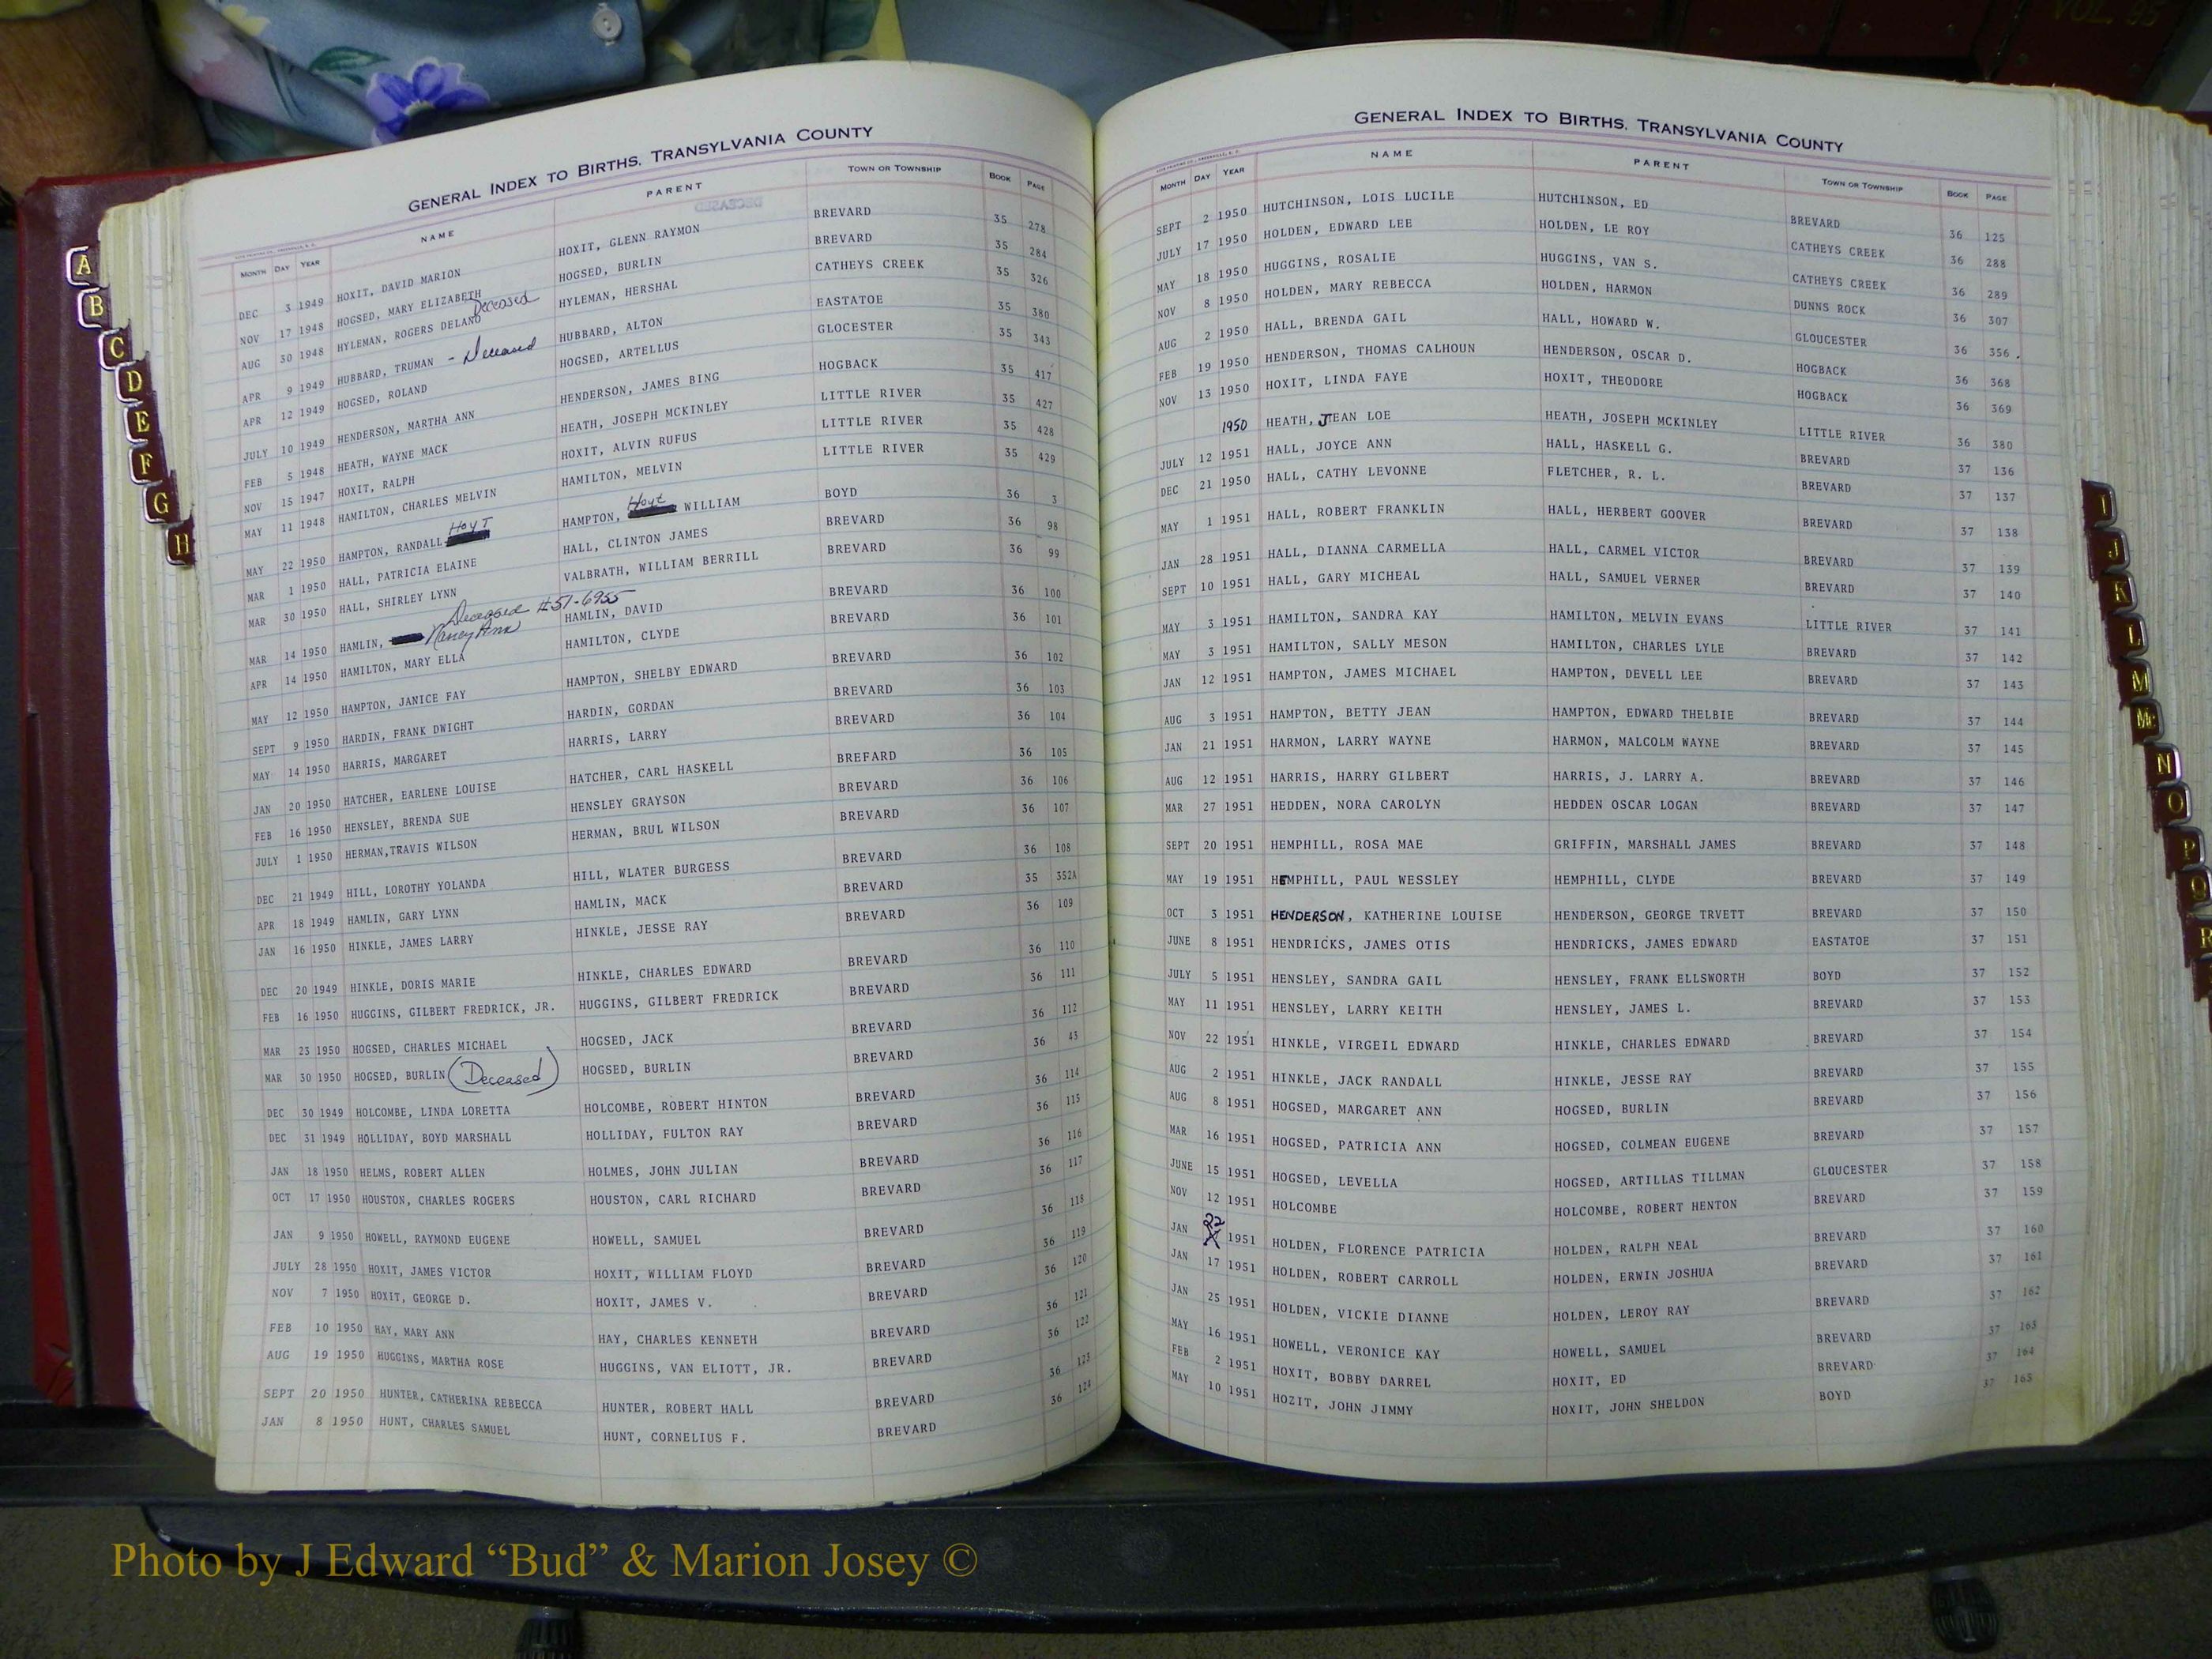 VOL. 95
GENERAL INDEX TO BIRTHS, TRANSYLVANIA COUNTY
MONTH DAY YEAR NAME PARENT TOWN OR TOWNSHIP BOOK PAGE
DECEASED
DEC 3 1949 HOXIT, DAVID MARION HOXIT, GLENN RAYMON BREVARD 35 278
NOV 17 1948 HOGSED, MARY ELIZABETH HOGSED, BURLIN BREVARD 35 284
AUG 30 1948 HYLEMAN, ROGERS DELANO Deceased HYLEMAN, HERSHAL CATHEYS CREEK 35 326
APR 9 1949 HUBBARD, TRUMAN - Deceased HUBBARD, ALTON EASTATOE 35 380
APR 12 1949 HOGSED, ROLAND HOGSED, ARTELLUS GLOCESTER 35 343
JULY 10 1949 HENDERSON, MARTHA ANN HENDERSON, JAMES BING HOGBACK 35 417
FEB 5 1948 HEATH, WAYNE MACK HEATH, JOSEPH MCKINLEY LITTLE RIVER 35 427
NOV 15 1947 HOXIT, RALPH HOXIT, ALVIN RUFUS LITTLE RIVER 35 428
MAY 11 1948 HAMILTON, CHARLES MELVIN HAMILTON, MELVIN LITTLE RIVER 35 429
MAY 22 1950 HAMPTON, RANDALL HOYT HAMPTON, Hoyt WILLIAM BOYD 36 3
MAR 1 1950 HALL, PATRICIA ELAINE HALL, CLINTON JAMES BREVARD 36 98
MAR 30 1950 HALL, SHIRLEY LYNN VALBRATH, WILLIAM BERRILL BREVARD 36 99
Deceased #51-6955
MAR 14 1950 HAMLIN, Nancy Ann HAMLIN, DAVID BREVARD 36 100
APR 14 1950 HAMILTON, MARY ELLA HAMILTON, CLYDE BREVARD 36 101
MAY 12 1950 HAMPTON, JANICE FAY HAMPTON, SHELBY EDWARD BREVARD 36 102
SEPT 9 1950 HARDIN, FRANK DWIGHT HARDIN, GORDAN BREVARD 36 103
MAY 14 1950 HARRIS, MARGARET HARRIS, LARRY BREVARD 36 104
JAN 20 1950 HATCHER, EARLENE LOUISE HATCHER, CARL HASKELL BREFARD 36 105
FEB 16 1950 HENSLEY, BRENDA SUE HENSLEY GRAYSON BREVARD 36 106
JULY 1 1950 HERMAN,TRAVIS WILSON HERMAN, BRUL WILSON BREVARD 36 107
DEC 21 1949 HILL, LOROTHY YOLANDA HILL, WLATER BURGESS BREVARD 36 108
APR 18 1949 HAMLIN, GARY LYNN HAMLIN, MACK BREVARD 35 352A
JAN 16 1950 HINKLE, JAMES LARRY HINKLE, JESSE RAY BREVARD 36 109
DEC 20 1949 HINKLE, DORIS MARIE HINKLE, CHARLES EDWARD BREVARD 36 110
FEB 16 1950 HUGGINS, GILBERT FREDRICK, JR. HUGGINS, GILBERT FREDRICK BREVARD 36 111
MAR 23 1950 HOGSED, CHARLES MICHAEL HOGSED, JACK BREVARD 36 112
MAR 30 1950 HOGSED, BURLIN (Deceased) HOGSED, BURLIN BREVARD 36 43
DEC 30 1949 HOLCOMBE, LINDA LORETTA HOLCOMBE, ROBERT HINTON BREVARD 36 114
DEC 31 1949 HOLLIDAY, BOYD MARSHALL HOLLIDAY, FULTON RAY BREVARD 36 115
JAN 18 1950 HELMS, ROBERT ALLEN HOLMES, JOHN JULIAN BREVARD 36 116
OCT 17 1950 HOUSTON, CHARLES ROGERS HOUSTON, CARL RICHARD BREVARD 36 117
JAN 9 1950 HOWELL, RAYMOND EUGENE HOWELL, SAMUEL BREVARD 36 118
JULY 28 1950 HOXIT, JAMES VICTOR HOXIT, WILLIAM FLOYD BREVARD 36 119
NOV 7 1950 HOXIT, GEORGE D. HOXIT, JAMES V. BREVARD 36 120
FEB 10 1950 HAY, MARY ANN HAY, CHARLES KENNETH BREVARD 36 121
AUG 19 1950 HUGGINS, MARTHA ROSE HUGGINS, VAN ELIOTT, JR. BREVARD 36 122
SEPT 20 1950 HUNTER, CATHERINA REBECCA HUNTER, ROBERT HALL BREVARD 36 123
JAN 8 1950 HUNT, CHARLES SAMUEL HUNT, CORNELIUS F. BREVARD 36 124
A
B
C
D
E
F
G
H
GENERAL INDEX TO BIRTHS, TRANSYLVANIA COUNTY
MONTH DAY YEAR NAME PARENT TOWN OR TOWNSHIP BOOK PAGE
SEPT 2 1950 HUTCHINSON, LOIS LUCILE HUTCHINSON, ED BREVARD 36 125
JULY 17 1950 HOLDEN, EDWARD LEE HOLDEN, LE ROY CATHEYS CREEK 36 288
MAY 18 1950 HUGGINS, ROSALIE HUGGINS, VAN S. CATHEYS CREEK 36 289
NOV 8 1950 HOLDEN, MARY REBECCA HOLDEN, HARMON DUNNS ROCK 36 307
AUG 2 1950 HALL, BRENDA GAIL HALL, HOWARD W. GLOUCESTER 36 356.
FEB 19 1950 HENDERSON, THOMAS CALHOUN HENDERSON, OSCAR D. HOGBACK 36 368
NOV 13 1950 HOXIT, LINDA FAYE HOXIT, THEODORE HOGBACK 36 369
1950 HEATH, JEAN LOE HEATH, JOSEPH MCKINLEY LITTLE RIVER 36 380
JULY 12 1951 HALL, JOYCE ANN HALL, HASKELL G. BREVARD 37 136
DEC 21 1950 HALL, CATHY LEVONNE FLETCHER, R. L. BREVARD 37 137
MAY 1 1951 HALL, ROBERT FRANKLIN HALL, HERBERT GOOVER BREVARD 37 138
JAN 28 1951 HALL, DIANNA CARMELLA HALL, CARMEL VICTOR BREVARD 37 139
SEPT 10 1951 HALL, GARY MICHEAL HALL, SAMUEL VERNER BREVARD 37 140
MAY 3 1951 HAMILTON, SANDRA KAY HAMILTON, MELVIN EVANS LITTLE RIVER 37 141
MAY 3 1951 HAMILTON, SALLY MESON HAMILTON, CHARLES LYLE BREVARD 37 142
JAN 12 1951 HAMPTON, JAMES MICHAEL HAMPTON, DEVELL LEE BREVARD 37 143
AUG 3 1951 HAMPTON, BETTY JEAN HAMPTON, EDWARD THELBIE BREVARD 37 144
JAN 21 1951 HARMON, LARRY WAYNE HARMON, MALCOLM WAYNE BREVARD 37 145
AUG 12 1951 HARRIS, HARRY GILBERT HARRIS, J. LARRY A. BREVARD 37 146
MAR 27 1951 HEDDEN, NORA CAROLYN HEDDEN OSCAR LOGAN BREVARD 37 147
SEPT 20 1951 HEMPHILL, ROSA MAE GRIFFIN, MARSHALL JAMES BREVARD 37 148
MAY 19 1951 HEMPHILL, PAUL WESSLEY HEMPHILL, CLYDE BREVARD 37 149
OCT 3 1951 HENDERSON, KATHERINE LOUISE HENDERSON, GEORGE TRVETT BREVARD 37 150
JUNE 8 1951 HENDRICKS, JAMES OTIS HENDRICKS, JAMES EDWARD EASTATOE 37 151
JULY 5 1951 HENSLEY, SANDRA GAIL HENSLEY, FRANK ELLSWORTH BOYD 37 152
MAY 11 1951 HENSLEY, LARRY KEITH HENSLEY, JAMES L. BREVARD 37 153
NOV 22 1951 HINKLE, VIRGEIL EDWARD HINKLE, CHARLES EDWARD BREVARD 37 154
AUG 2 1951 HINKLE, JACK RANDALL HINKLE, JESSE RAY BREVARD 37 155
AUG 8 1951 HOGSED, MARGARET ANN HOGSED, BURLIN BREVARD 37 156
MAR 16 1951 HOGSED, PATRICIA ANN HOGSED, COLMEAN EUGENE BREVARD 37 157
JUNE 15 1951 HOGSED, LEVELLA HOGSED, ARTILLAS TILLMAN GLOUCESTER 37 158
NOV 12 1951 HOLCOMBE HOLCOMBE, ROBERT HENTON BREVARD 37 159
JAN 22 1951 HOLDEN, FLORENCE PATRICIA HOLDEN, RALPH NEAL BREVARD 37 160
JAN 17 1951 HOLDEN, ROBERT CARROLL HOLDEN, ERWIN JOSHUA BREVARD 37 161
JAN 25 1951 HOLDEN, VICKIE DIANNE HOLDEN, LEROY RAY BREVARD 37 162
MAY 16 1951 HOWELL, VERONICE KAY HOWELL, SAMUEL BREVARD 37 163
FEB 2 1951 HOXIT, BOBBY DARREL HOXIT, ED BREVARD 37 164
MAY 10 1951 HOZIT, JOHN JIMMY HOXIT, JOHN SHELDON BOYD 37 165
I
J
K
L
M
Mc
N
O
P
Q
R
Photo by J Edward “Bud” & Marion Josey ©